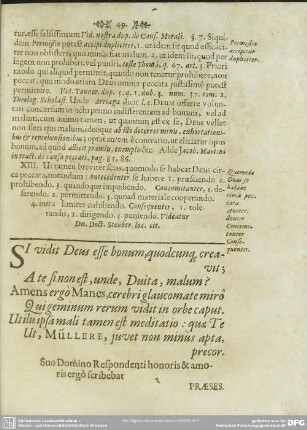 49.
tur, esse falsissimum Vid. nostra disp. de Caus. Morali. §. 7. Siqui-
dem Permissio potest accipi dupliciter, 1. ut idem sit quod efficaci-
ter non obsistere, quominus fiat malum, 2. ut idem sit, quod per
legem non prohiberi, vel puniri, teste Thomâ, q. 67. art. 3. Priori
modo qui aliquid permittit, quando non tenetur prohibere, non
peccat, quomodo etiam Deus omnia peccata justissimè potest
permittere. Vid. Tanner. disp. 4. q. 3. dub. 3. num. 37. tom. 2.
Theolog. Scholast. Unde Arriaga dicit l. c. Deus offerre volunta-
ti concursum in actu primo indifferentem ad bonum, vel ad
malum, cum animo tamen, ut quantum est ex se, Deus vellet
non fieri ejus malum, ideoque ab illo deterret minis, exhortationi-
bus & reprehensionibus; optat autem è contrario, ut eliciatur opus
bonum, ad quod allicit præmiis, exemplis &c. Adde Jacob. Martini
in tract. de causa peccati, pag. 85. 86.
XIII. Ut tamen breviter scias, quomodo se habeat Deus cir-
ca peccata, notandum: Antecedenter se habere 1. præsciendo 2.
prohibendo. 3. quandoque impediendo. Concomitanter, 1. de-
serendo. 2. permittendo. 3. quoad materiale cooperando.
4. intra limites cohibendo. Consequenter, 1. tole-
rando, 2. dirigendo. 3. puniendo. Videatur
Dn. Doct. Steuber. loc. cit.
Permissio
accipitur
dupliciter.
Quomodo
Deus se
habeat
circa pec-
cata
Antece-
denter
Concomi-
tanter
Conse-
quenter.
SI vidit Deus esse bonum, quodcunq; crea-
vit;
A te si non est, unde, Duita, malum?
Amens ergò Manes, cerebri glaucomate mirô
Qui geminum rerum vidit in orbe caput.
Utilis ipsa mali tamen est meditatio: quæ Te
Ut, MÜLLERE, juvet non minus apta,
precor.
Suo Domino Respondenti honoris & amo-
ris ergò scribebat
PRÆSES.